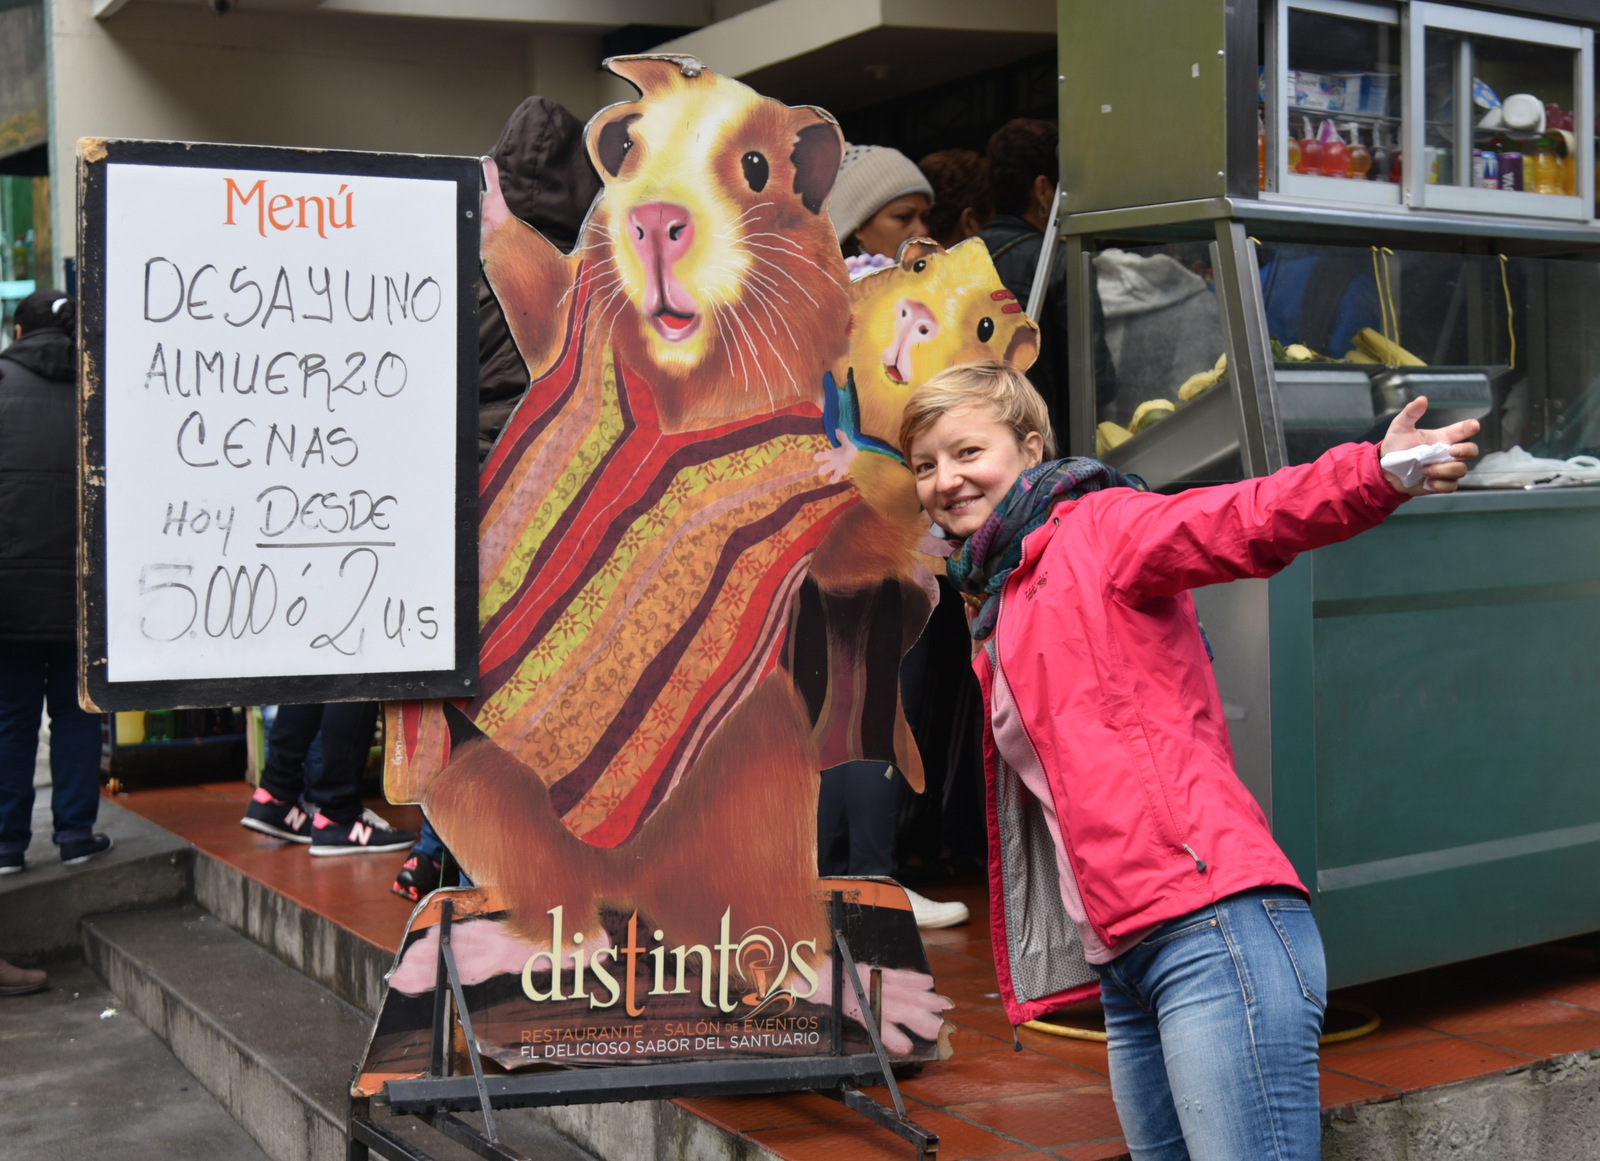 Menú
DESAYUNO
ALMUERZO
CENAS
HOY DESDE
5.000 ó 2 U.S
distintos
RESTAURANTE Y SALÓN DE EVENTOS
EL DELICIOSO SABOR DEL SANTUARIO
N
N